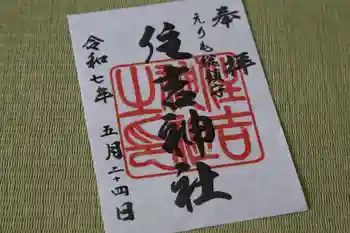 奉拝
えりも総鎮守
住吉神社
令和七年 五月二十四日